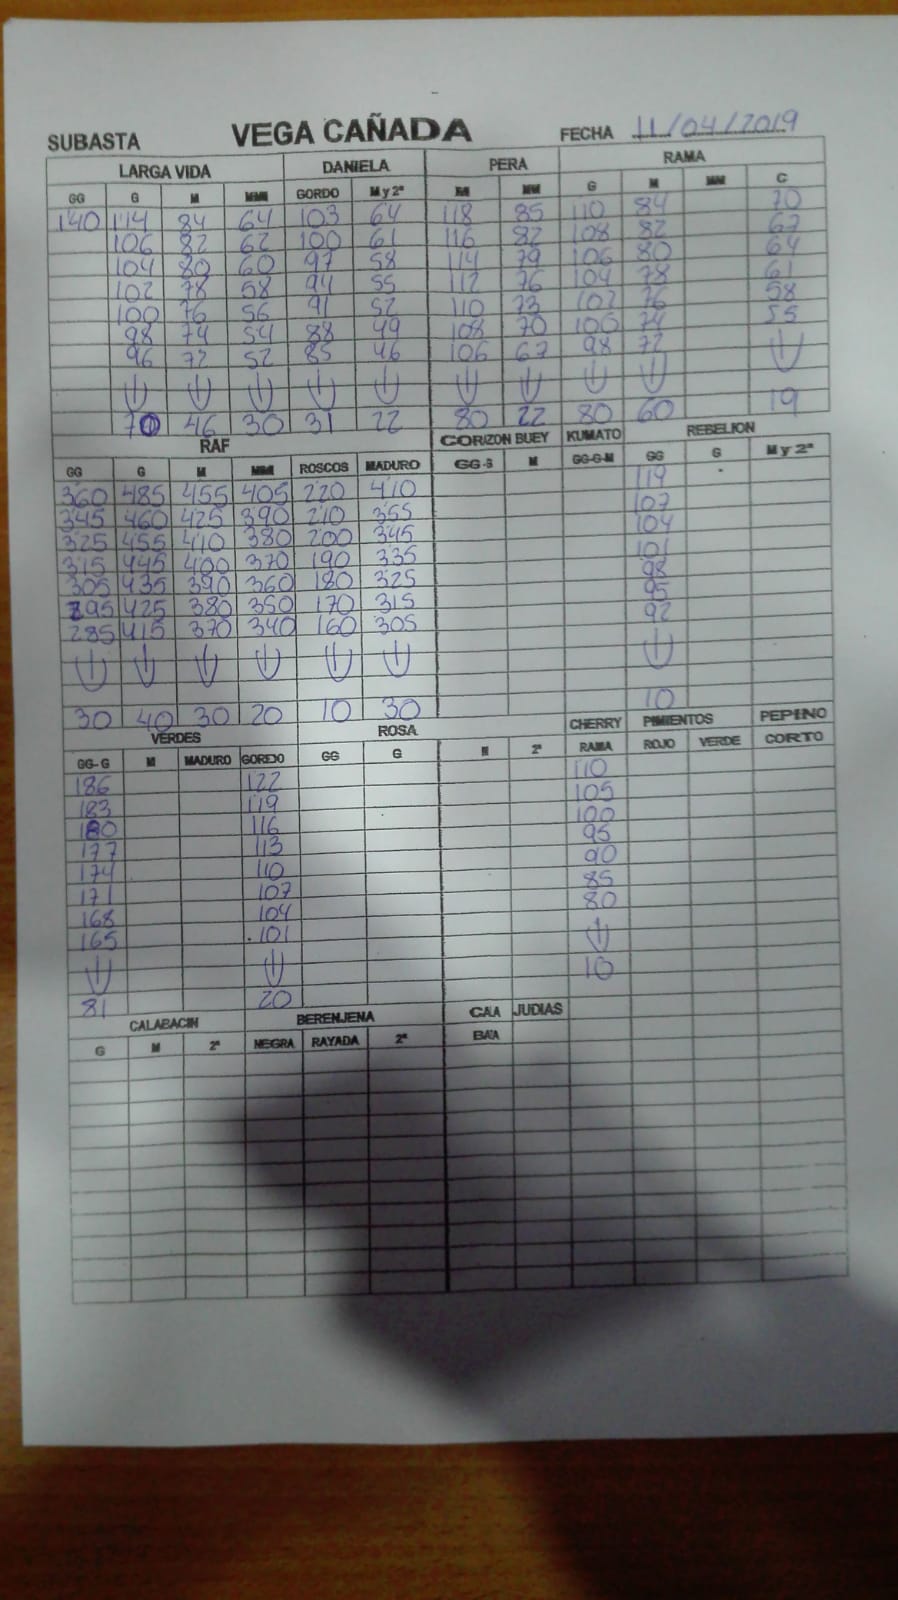 SUBASTA VEGA CAÑADA FECHA 11/04/2019
LARGA VIDA DANIELA PERA RAMA
GG G M MM GORDO M y 2ª M MM G M MM C
140 114 84 64 103 64 118 85 110 84 70
106 82 62 100 61 116 82 108 82 67
104 80 60 97 58 114 79 106 80 64
102 78 58 94 55 112 76 104 78 61
100 76 56 91 52 110 73 102 76 58
98 74 54 88 49 108 70 100 74 55
96 72 52 85 46 106 67 98 72
70 46 30 31 22 80 22 80 60 19
RAF CORIZON BUEY KUMATO REBELION
GG G M MM ROSCOS MADURO GG-S M GG-G-M GG G M y 2ª
360 485 455 405 220 410 119
345 460 425 390 210 355 107
325 455 410 380 200 345 104
315 445 400 370 190 335 101
305 435 390 360 180 325 98
295 425 380 350 170 315 95
285 415 370 340 160 305 92
30 40 30 20 10 30 10
VERDES ROSA CHERRY PIMIENTOS PEPINO
GG-G M MADURO GORDO GG G M 2ª RAMA ROJO VERDE CORTO
186 122 110
183 119 105
180 116 100
177 113 95
174 110 90
171 107 85
168 104 80
165 101
81 20 10
CALABACIN BERENJENA CALA JUDIAS
G M 2ª NEGRA RAYADA 2ª BA'A